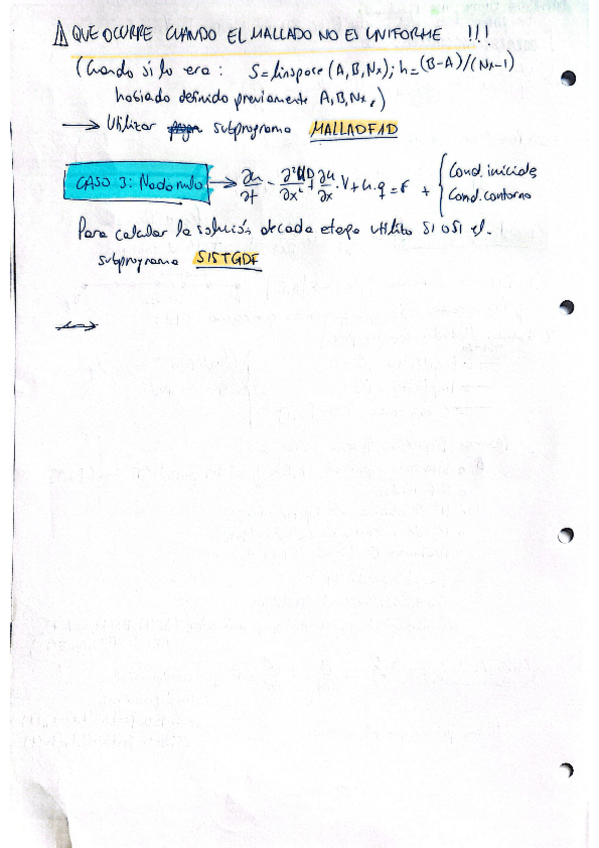 ⚠ QUE OCURRE CUANDO EL MALLADO NO ES UNIFORME !!!
(Cuando si lo era: S=linspace(A,B,Nx); h=(B-A)/(Nx-1)
habiado definido previamente A,B,Nx,)
→ Utilizar subprograma MALLADF1D
CASO 3: Nodo nulo → ∂u/∂t - ∂²u/∂x² D + ∂u/∂x · V + u·q = F + { Cond. iniciales
Cond. contorno
Para calcular la solución de cada etapa utilizo SI O SI el
subprograma SISTGDF